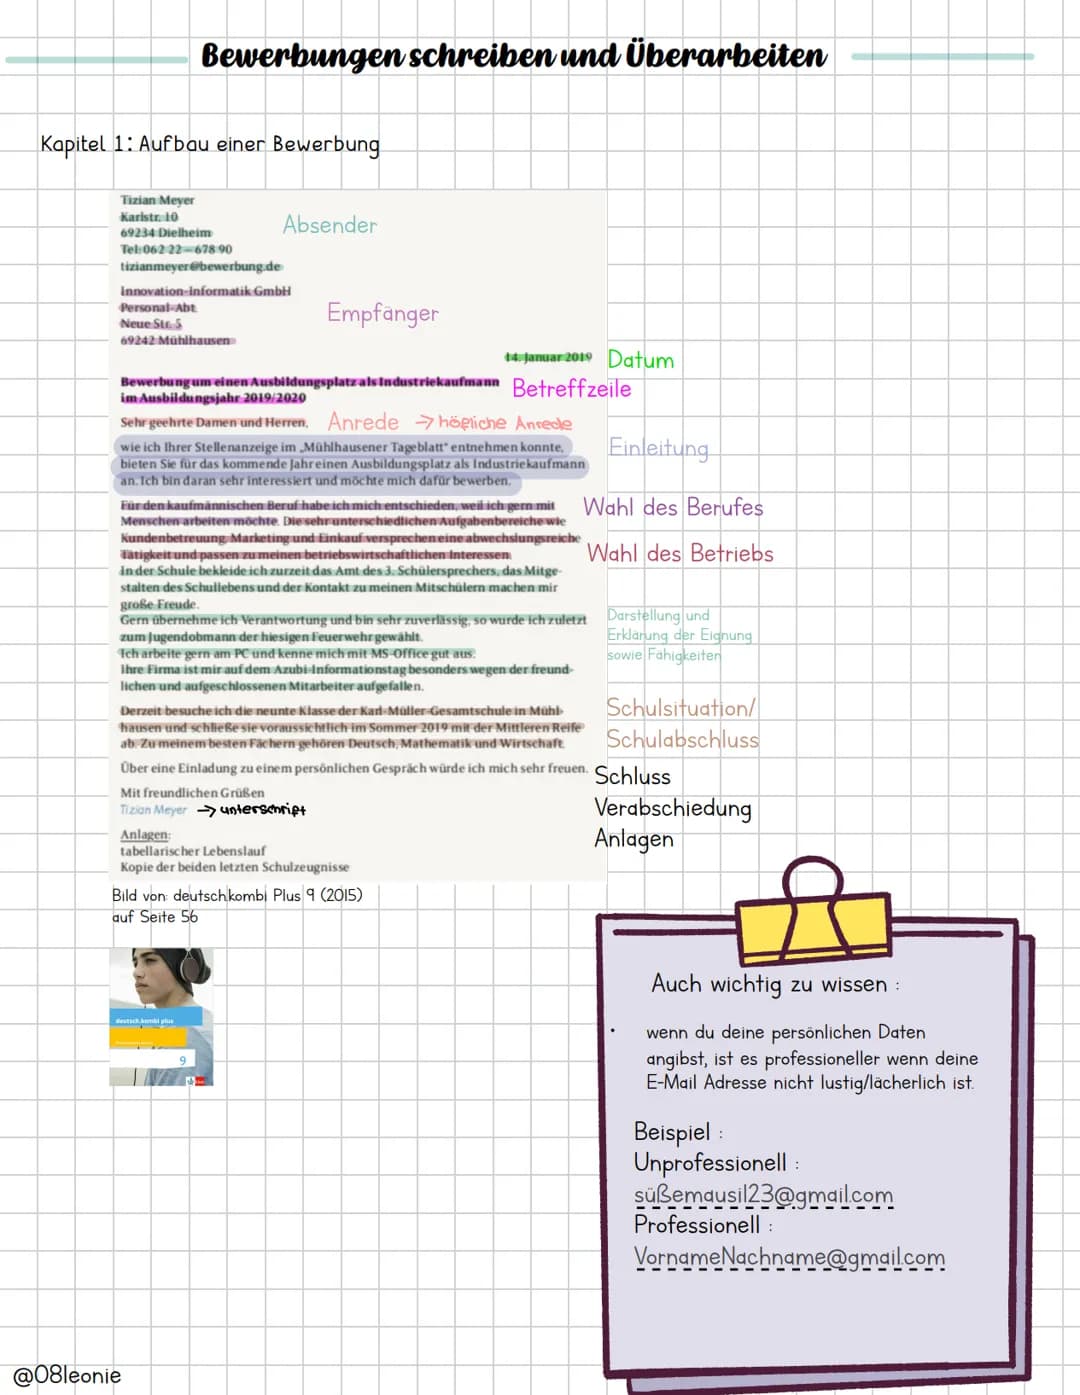 Bewerbungen schreiben und Überarbeiten
Kapitel 1: Aufbau einer Bewerbung
Tizian Meyer
Karlstr. 10
69234 Dielheim
Tel: 062 22 – 678 90
tizianmeyer@bewerbung.de
Absender
Innovation-Informatik GmbH
Personal-Abt.
Neue Str. 5
69242 Mühlhausen
Empfänger
14. Januar 2019
Datum
Bewerbung um einen Ausbildungsplatz als Industriekaufmann
im Ausbildungsjahr 2019/2020
Betreffzeile
Sehr geehrte Damen und Herren,
Anrede → höfliche Anrede
wie ich Ihrer Stellenanzeige im „Mühlhausener Tageblatt“ entnehmen konnte,
bieten Sie für das kommende Jahr einen Ausbildungsplatz als Industriekaufmann
an. Ich bin daran sehr interessiert und möchte mich dafür bewerben.
Einleitung
Für den kaufmännischen Beruf habe ich mich entschieden, weil ich gern mit
Menschen arbeiten möchte. Die sehr unterschiedlichen Aufgabenbereiche wie
Kundenbetreuung, Marketing und Einkauf versprechen eine abwechslungsreiche
Tätigkeit und passen zu meinen betriebswirtschaftlichen Interessen.
Wahl des Berufes
Wahl des Betriebs
In der Schule bekleide ich zurzeit das Amt des 3. Schülersprechers, das Mitge-
stalten des Schullebens und der Kontakt zu meinen Mitschülern machen mir
große Freude.
Gern übernehme ich Verantwortung und bin sehr zuverlässig, so wurde ich zuletzt
zum Jugendobmann der hiesigen Feuerwehr gewählt.
Ich arbeite gern am PC und kenne mich mit MS-Office gut aus.
Ihre Firma ist mir auf dem Azubi-Informationstag besonders wegen der freund-
lichen und aufgeschlossenen Mitarbeiter aufgefallen.
Darstellung und
Erklärung der Eignung
sowie Fähigkeiten
Derzeit besuche ich die neunte Klasse der Karl-Müller-Gesamtschule in Mühl-
hausen und schließe sie voraussichtlich im Sommer 2019 mit der Mittleren Reife
ab. Zu meinem besten Fächern gehören Deutsch, Mathematik und Wirtschaft.
Schulsituation/
Schulabschluss
Über eine Einladung zu einem persönlichen Gespräch würde ich mich sehr freuen.
Schluss
Mit freundlichen Grüßen
Tizian Meyer → unterschrift
Verabschiedung
Anlagen:
tabellarischer Lebenslauf
Kopie der beiden letzten Schulzeugnisse
Anlagen
Bild von: deutsch.kombi Plus 9 (2015)
auf Seite 56
deutsch.kombi plus
9
Auch wichtig zu wissen :
• wenn du deine persönlichen Daten
angibst, ist es professioneller wenn deine
E-Mail Adresse nicht lustig/lächerlich ist.
Beispiel :
Unprofessionell :
süßemausi123@gmail.com
Professionell :
VornameNachname@gmail.com
@08leonie